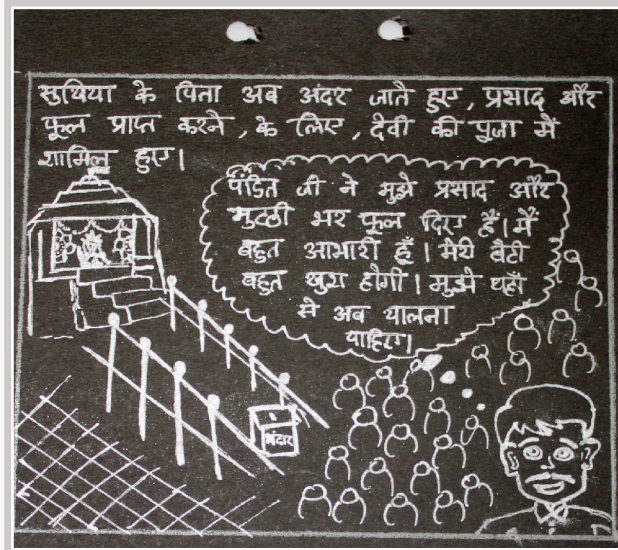 सुखिया के पिता अब अंदर जाते हुए, प्रसाद और
फूल प्राप्त करने, के लिए, देवी की पूजा में
शामिल हुए।
पंडित जी ने मुझे प्रसाद और
मुठ्ठी भर फूल दिए हैं। मैं
बहुत आभारी हूँ। मेरी बेटी
बहुत खुश होगी। मुझे यहाँ
से अब चालना
चाहिए।
भंदार